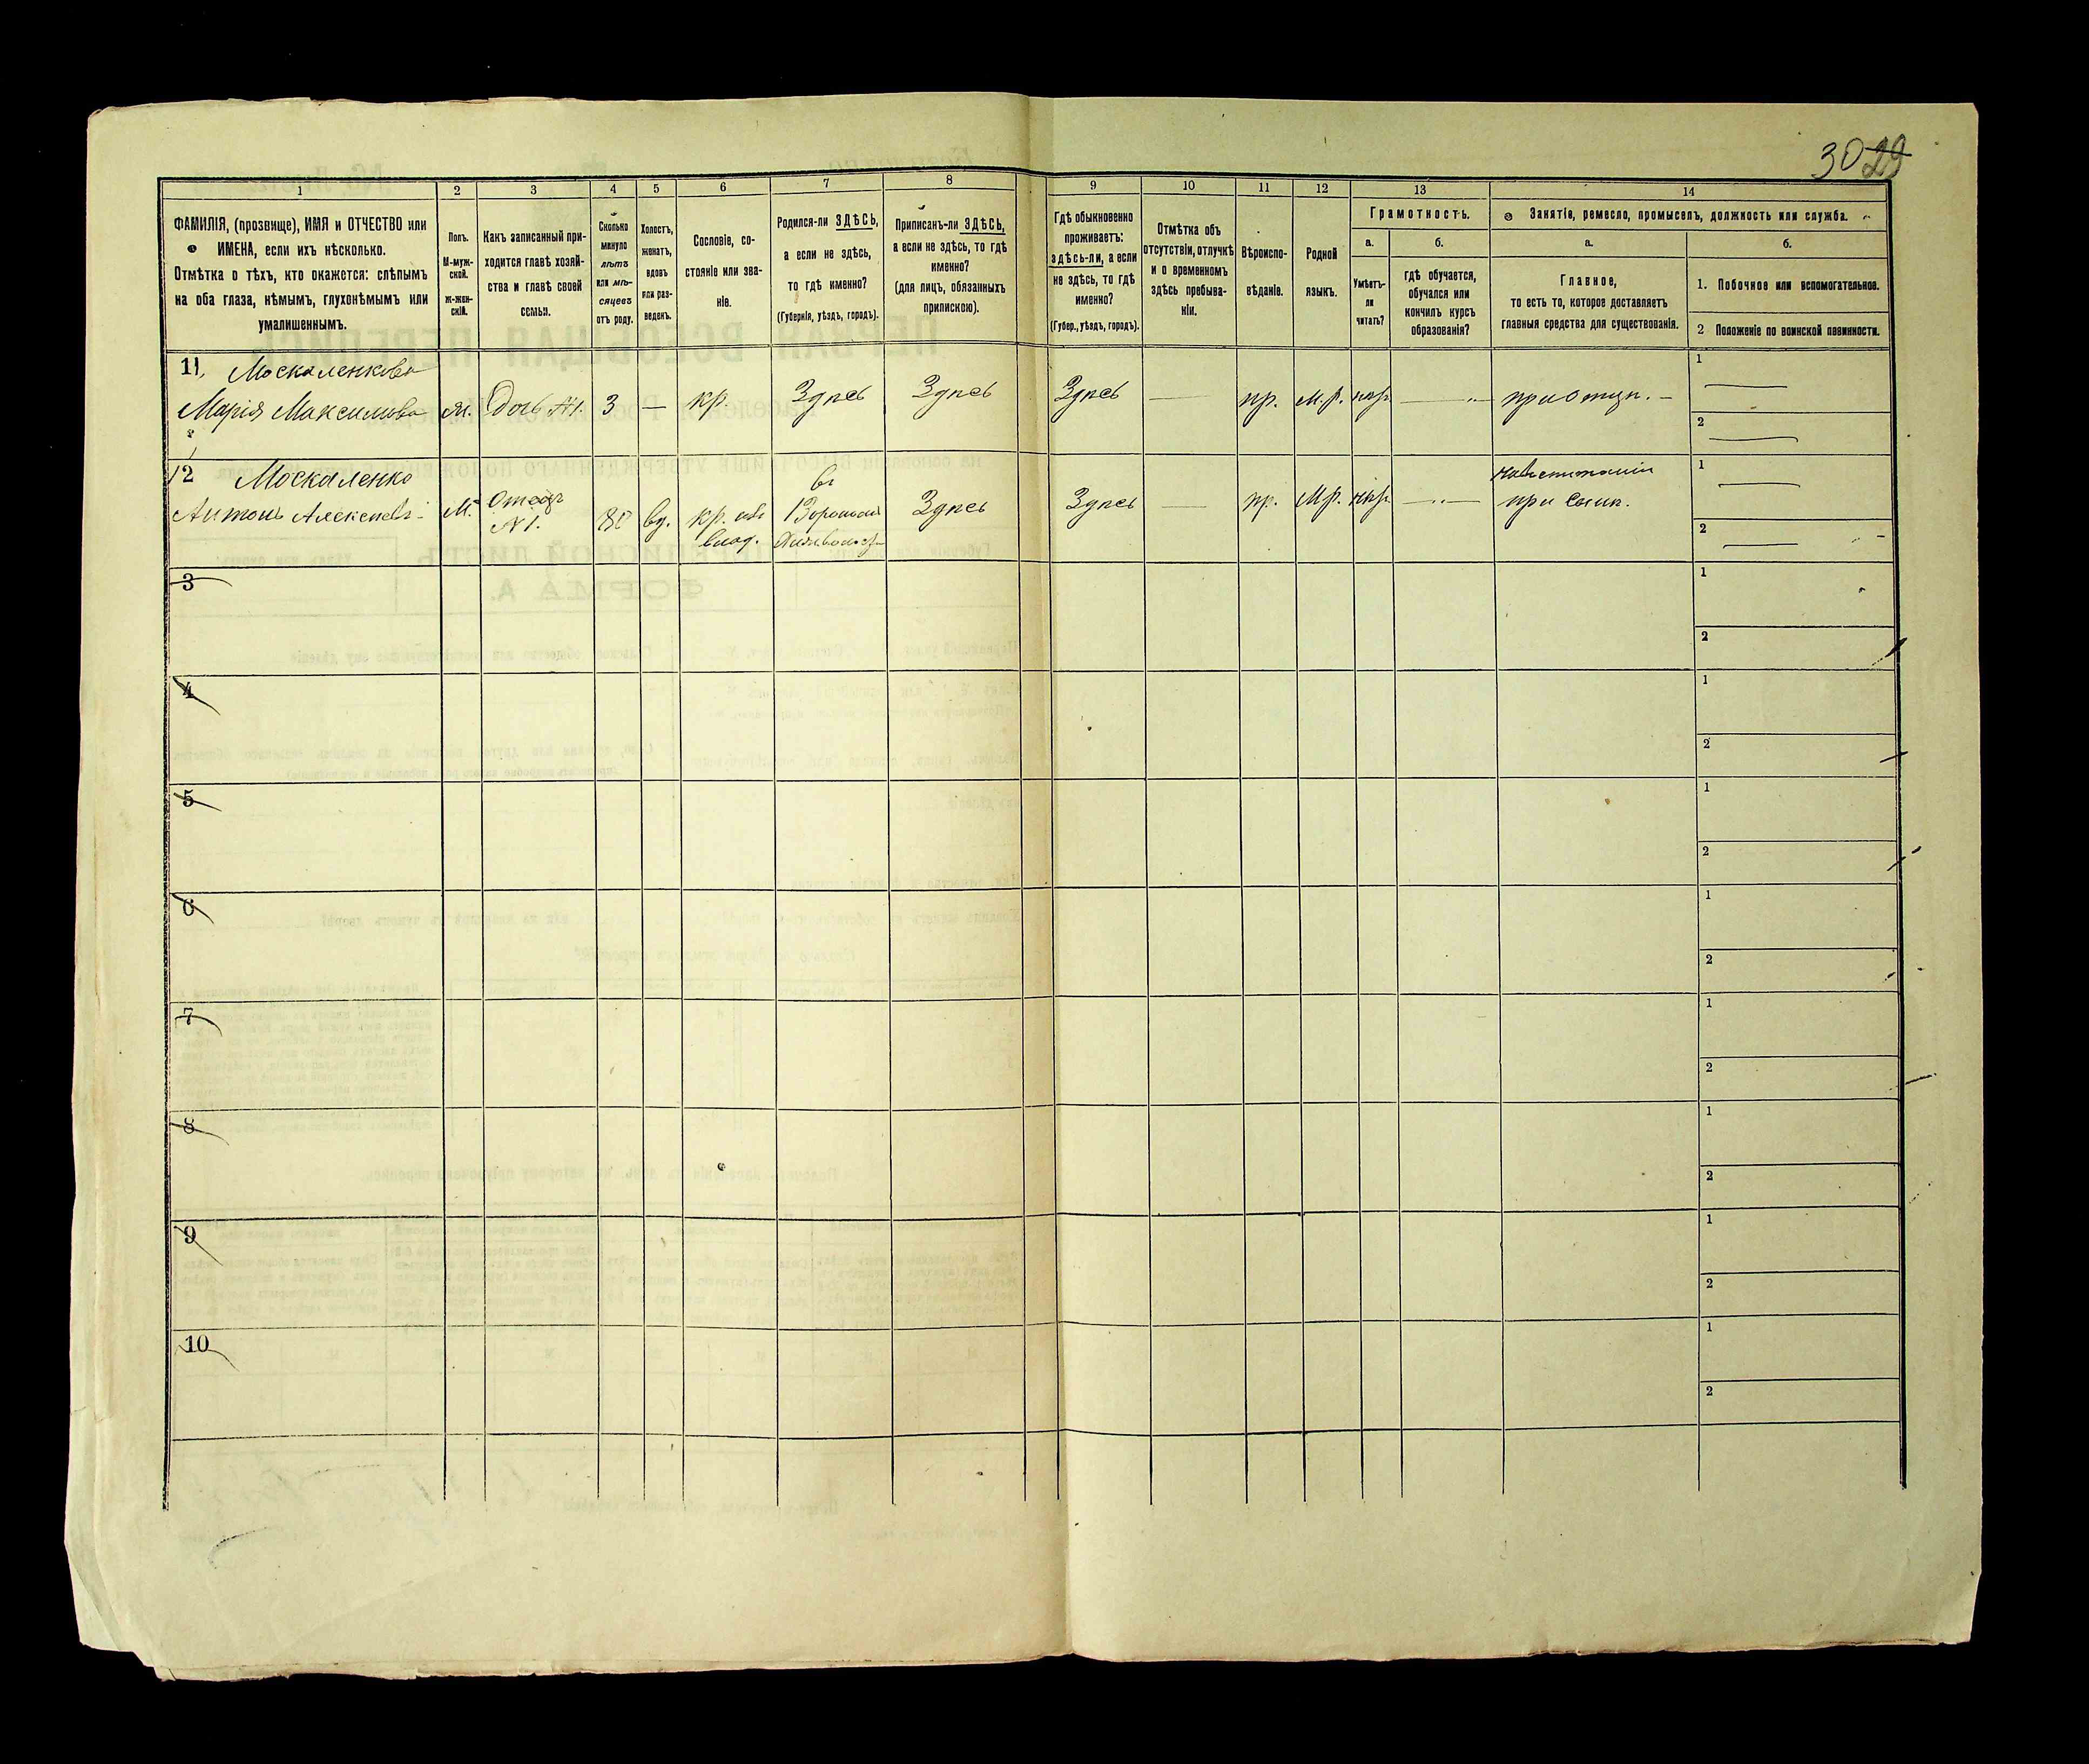 30 29
1
2
3
4
5
6
7
8
9
10
11
12
13
14
ФАМИЛІЯ, (прозвище), ИМЯ и ОТЧЕСТВО или
ИМЕНА, если ихъ нѣсколько.
Отмѣтка о тѣхъ, кто окажется: слѣпымъ
на оба глаза, нѣмымъ, глухонѣмымъ или
умалишеннымъ.
Полъ.
М-муж-
ской.
ж-жен-
скій.
Какъ записанный при-
ходится главѣ хозяй-
ства и главѣ своей
семьи.
Сколько
минуло
лѣтъ
или мѣ-
сяцевъ
отъ роду.
Холостъ,
женатъ,
вдовъ
или раз-
веденъ.
Сословіе, со-
стояніе или зва-
ніе.
Родился-ли ЗДѢСЬ,
а если не здѣсь,
то гдѣ именно?
(Губернія, уѣздъ, городъ).
Приписанъ-ли ЗДѢСЬ,
а если не здѣсь, то гдѣ
именно?
(для лицъ, обязанныхъ
припискою).
Гдѣ обыкновенно
проживаетъ:
здѣсь-ли, а если
не здѣсь, то гдѣ
именно?
(Губер., уѣздъ, городъ).
Отмѣтка объ
отсутствіи, отлучкѣ
и о временномъ
здѣсь пребыва-
ніи.
Вѣроиспо-
вѣданіе.
Родной
языкъ.
Грамотность.
а.
Умѣетъ-
ли
читать?
б.
гдѣ обучается,
обучался или
кончилъ курсъ
образованія?
Занятіе, ремесло, промыселъ, должность или служба.
а.
Главное,
то есть то, которое доставляетъ
главныя средства для существованія.
б.
1. Побочное или вспомогательное.
2 Положеніе по воинской повинности.
11. Москаленкова
Марія Максимова
Дочь №1.
3
—
кр.
Здѣсь
Здѣсь
Здѣсь
—
пр.
М.р.
нгр.
при отцѣ. -
1
2
12 Москаленко
Антонъ Алексѣевъ
М.
Отецъ
№1.
80
вд.
кр.
влад.
въ
Здѣсь
Здѣсь
—
пр.
М.р.
нгр.
при сынѣ.
1
2
3
1
2
4
1
2
5
1
2
6
1
2
7
1
2
8
1
2
9
1
2
10
1
2